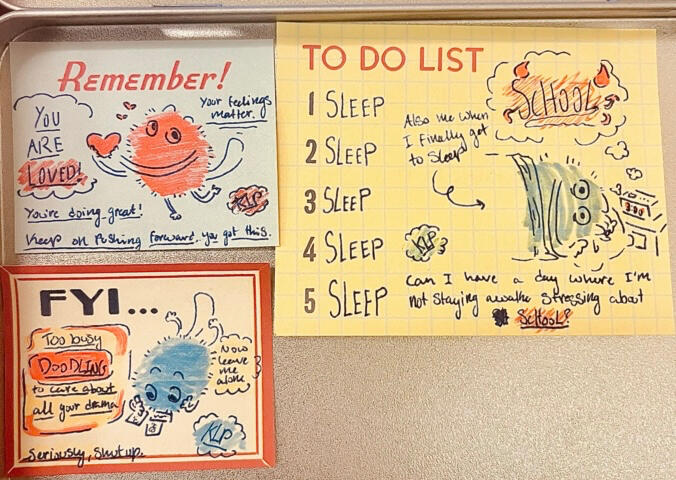 Remember!
YOU
ARE
LOVED!
Your feelings
matter.
You're doing great!
Keep on Pushing forward. you got this.
KLP
TO DO LIST
1 SLEEP
2 SLEEP
3 SLEEP
4 SLEEP
5 SLEEP
SCHOOL
Also me when
I finally get
to sleep
3:00
KLP
Can I have a day where I'm
not staying awake stressing about
SCHOOL?
FYI...
Too busy
DOODLING
to care about
all your drama
Now
leave
me
alone
KLP
Seriously, shut up.